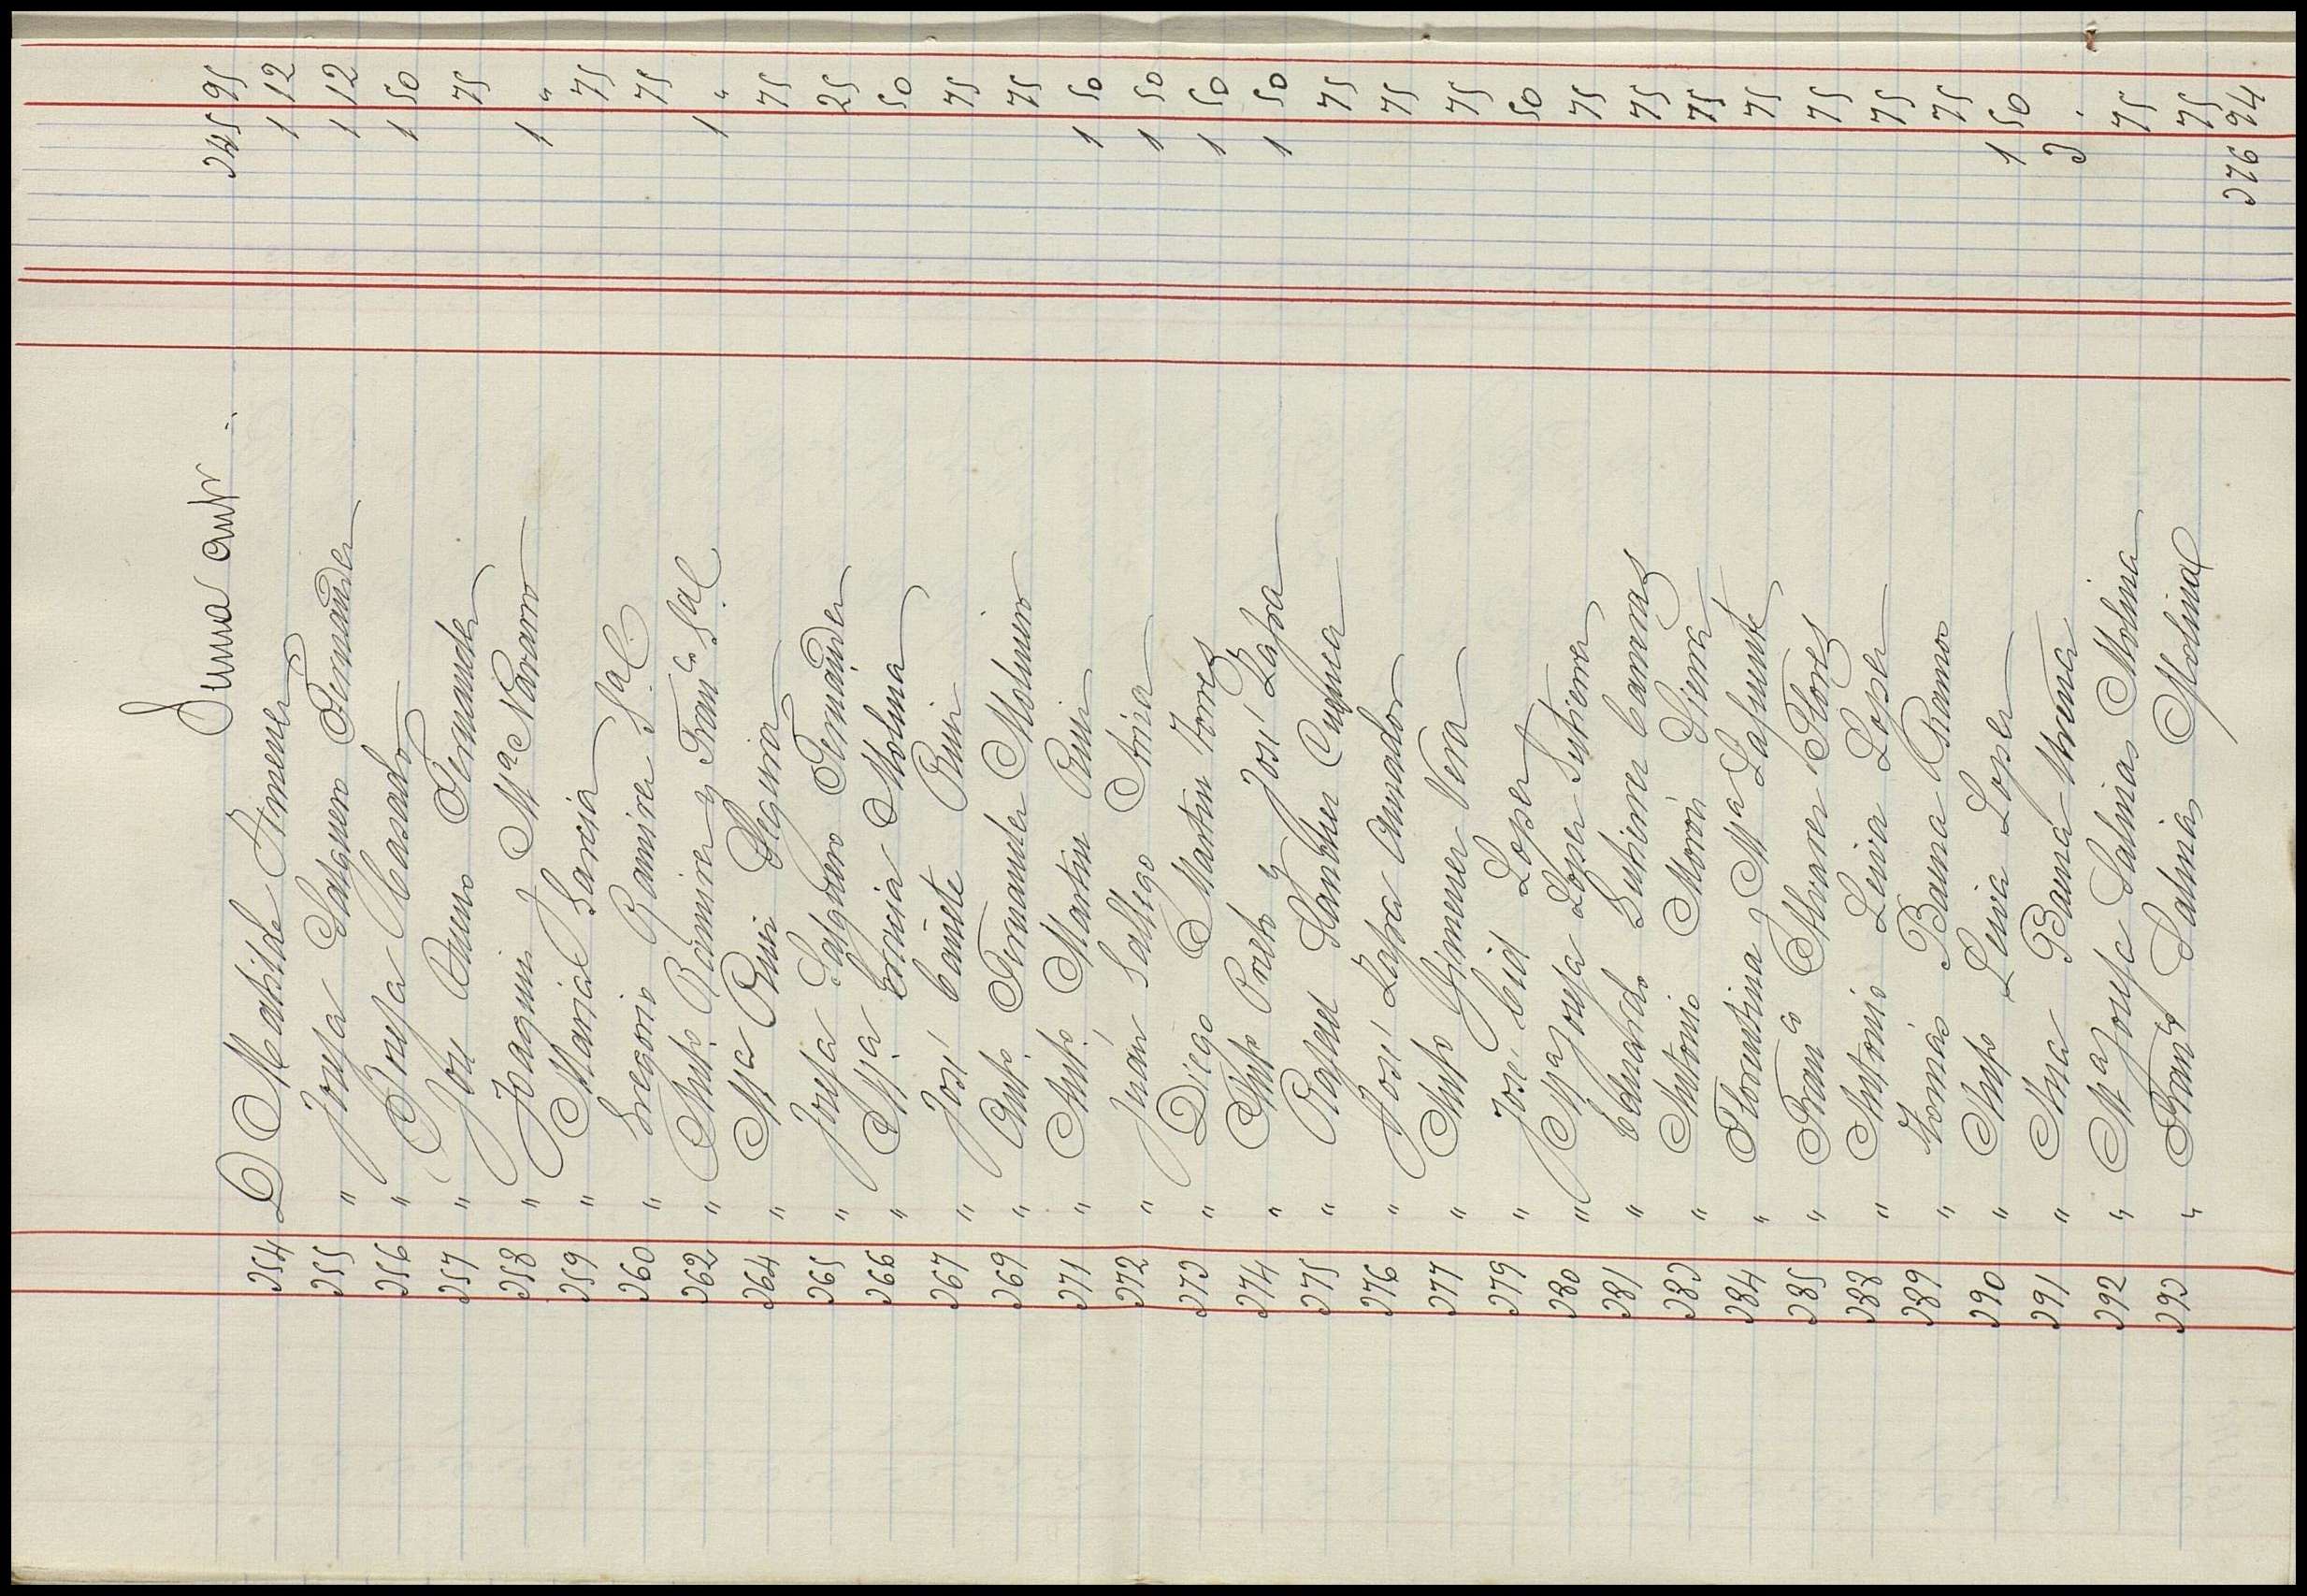 Suma antr ... 345 95
354 D Matilde Jimenez 1 12
355 " Josefa Salguero Fernandez 1 12
356 " Josefa Casado 1 50
357 " José Fernandez 75
358 " Joaquin y Mª Navarro 1 "
359 " Maria Garcia 75
360 " Gregorio Ramirez Gal 75
362 " Antº Ramirez y Franco Gal 1 "
364 " Mª Ruiz Segura 75
365 " Josefa Salguero Fernandez 25
366 " Mª Garcia Molina 50
367 " José Cañete Ruiz 75
369 " Antº Fernandez Molinero 75
371 " Antº Martin Ruiz 1 50
372 " Juan Gallego 1 50
373 " Diego Martin Torres 1 50
374 " Antº Prieto y José Zafra 1 50
375 " Rafael Sanchez Cuenca 75
376 " José Zafra Amador 75
377 " Antº Jimenez Vera 75
379 " José Cid Lopez 50
380 " Mª Josefa Lopez Gutierrez 75
381 " Eduardo Gutierrez Carreras 75
383 " Antonio Morón Sierra 75
384 " Florentina y Mª Lafuente 75
385 " Franco Alvarez Flores 75
388 " Antonio Leiva Lopez 75
389 " Tomás Baena Ramos 75
390 " Antº Leiva Lopez 1 50
391 " Ana Baena 3 "
392 " Mª Josefa Salinas Molina 75
393 " Franco Salinas Molina 75
376 94